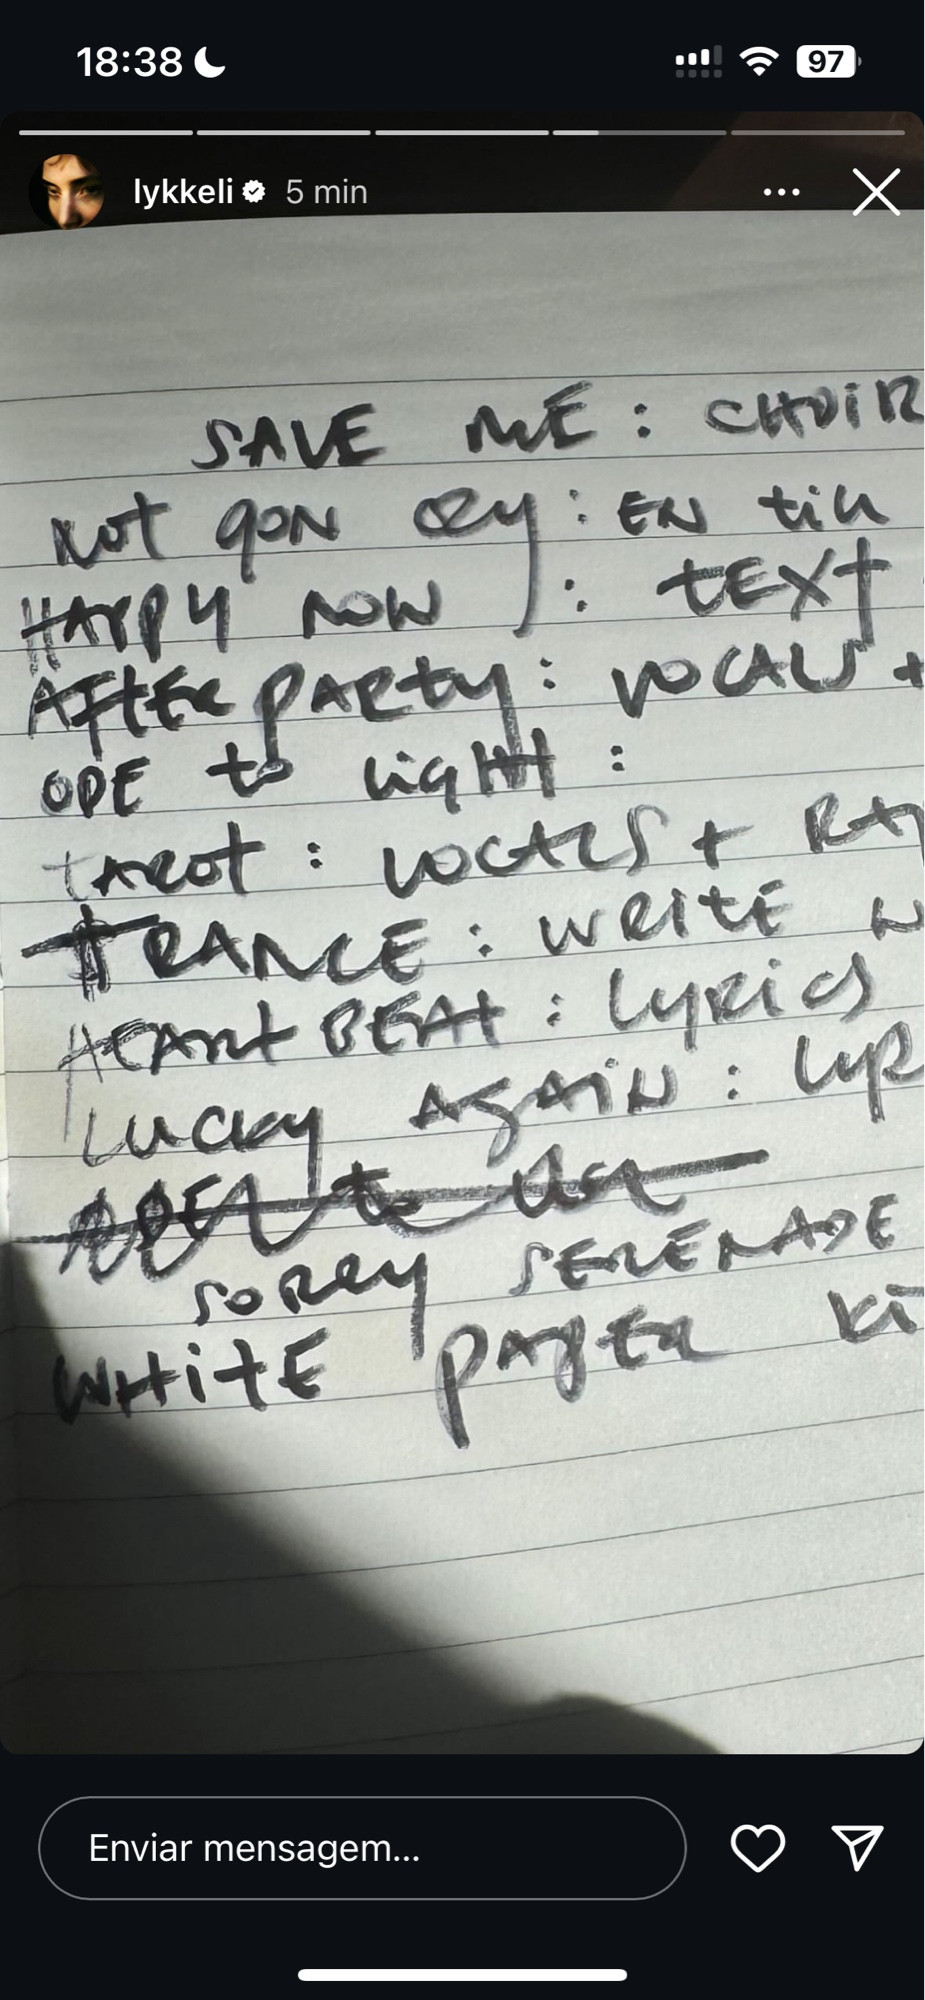 18:38
97
lykkeli 5 min
SAVE ME : CHOIR
Not gon cry : EN till
HAPPY NOW : TEXT
AFTER PARTY : VOCALS +
ODE to light :
tarot : VOCALS +
TRANCE : WRITE
HEART BEAT : Lyrics
LUCKY AGAIN :
SORRY SERENADE
WHITE paper
Enviar mensagem...